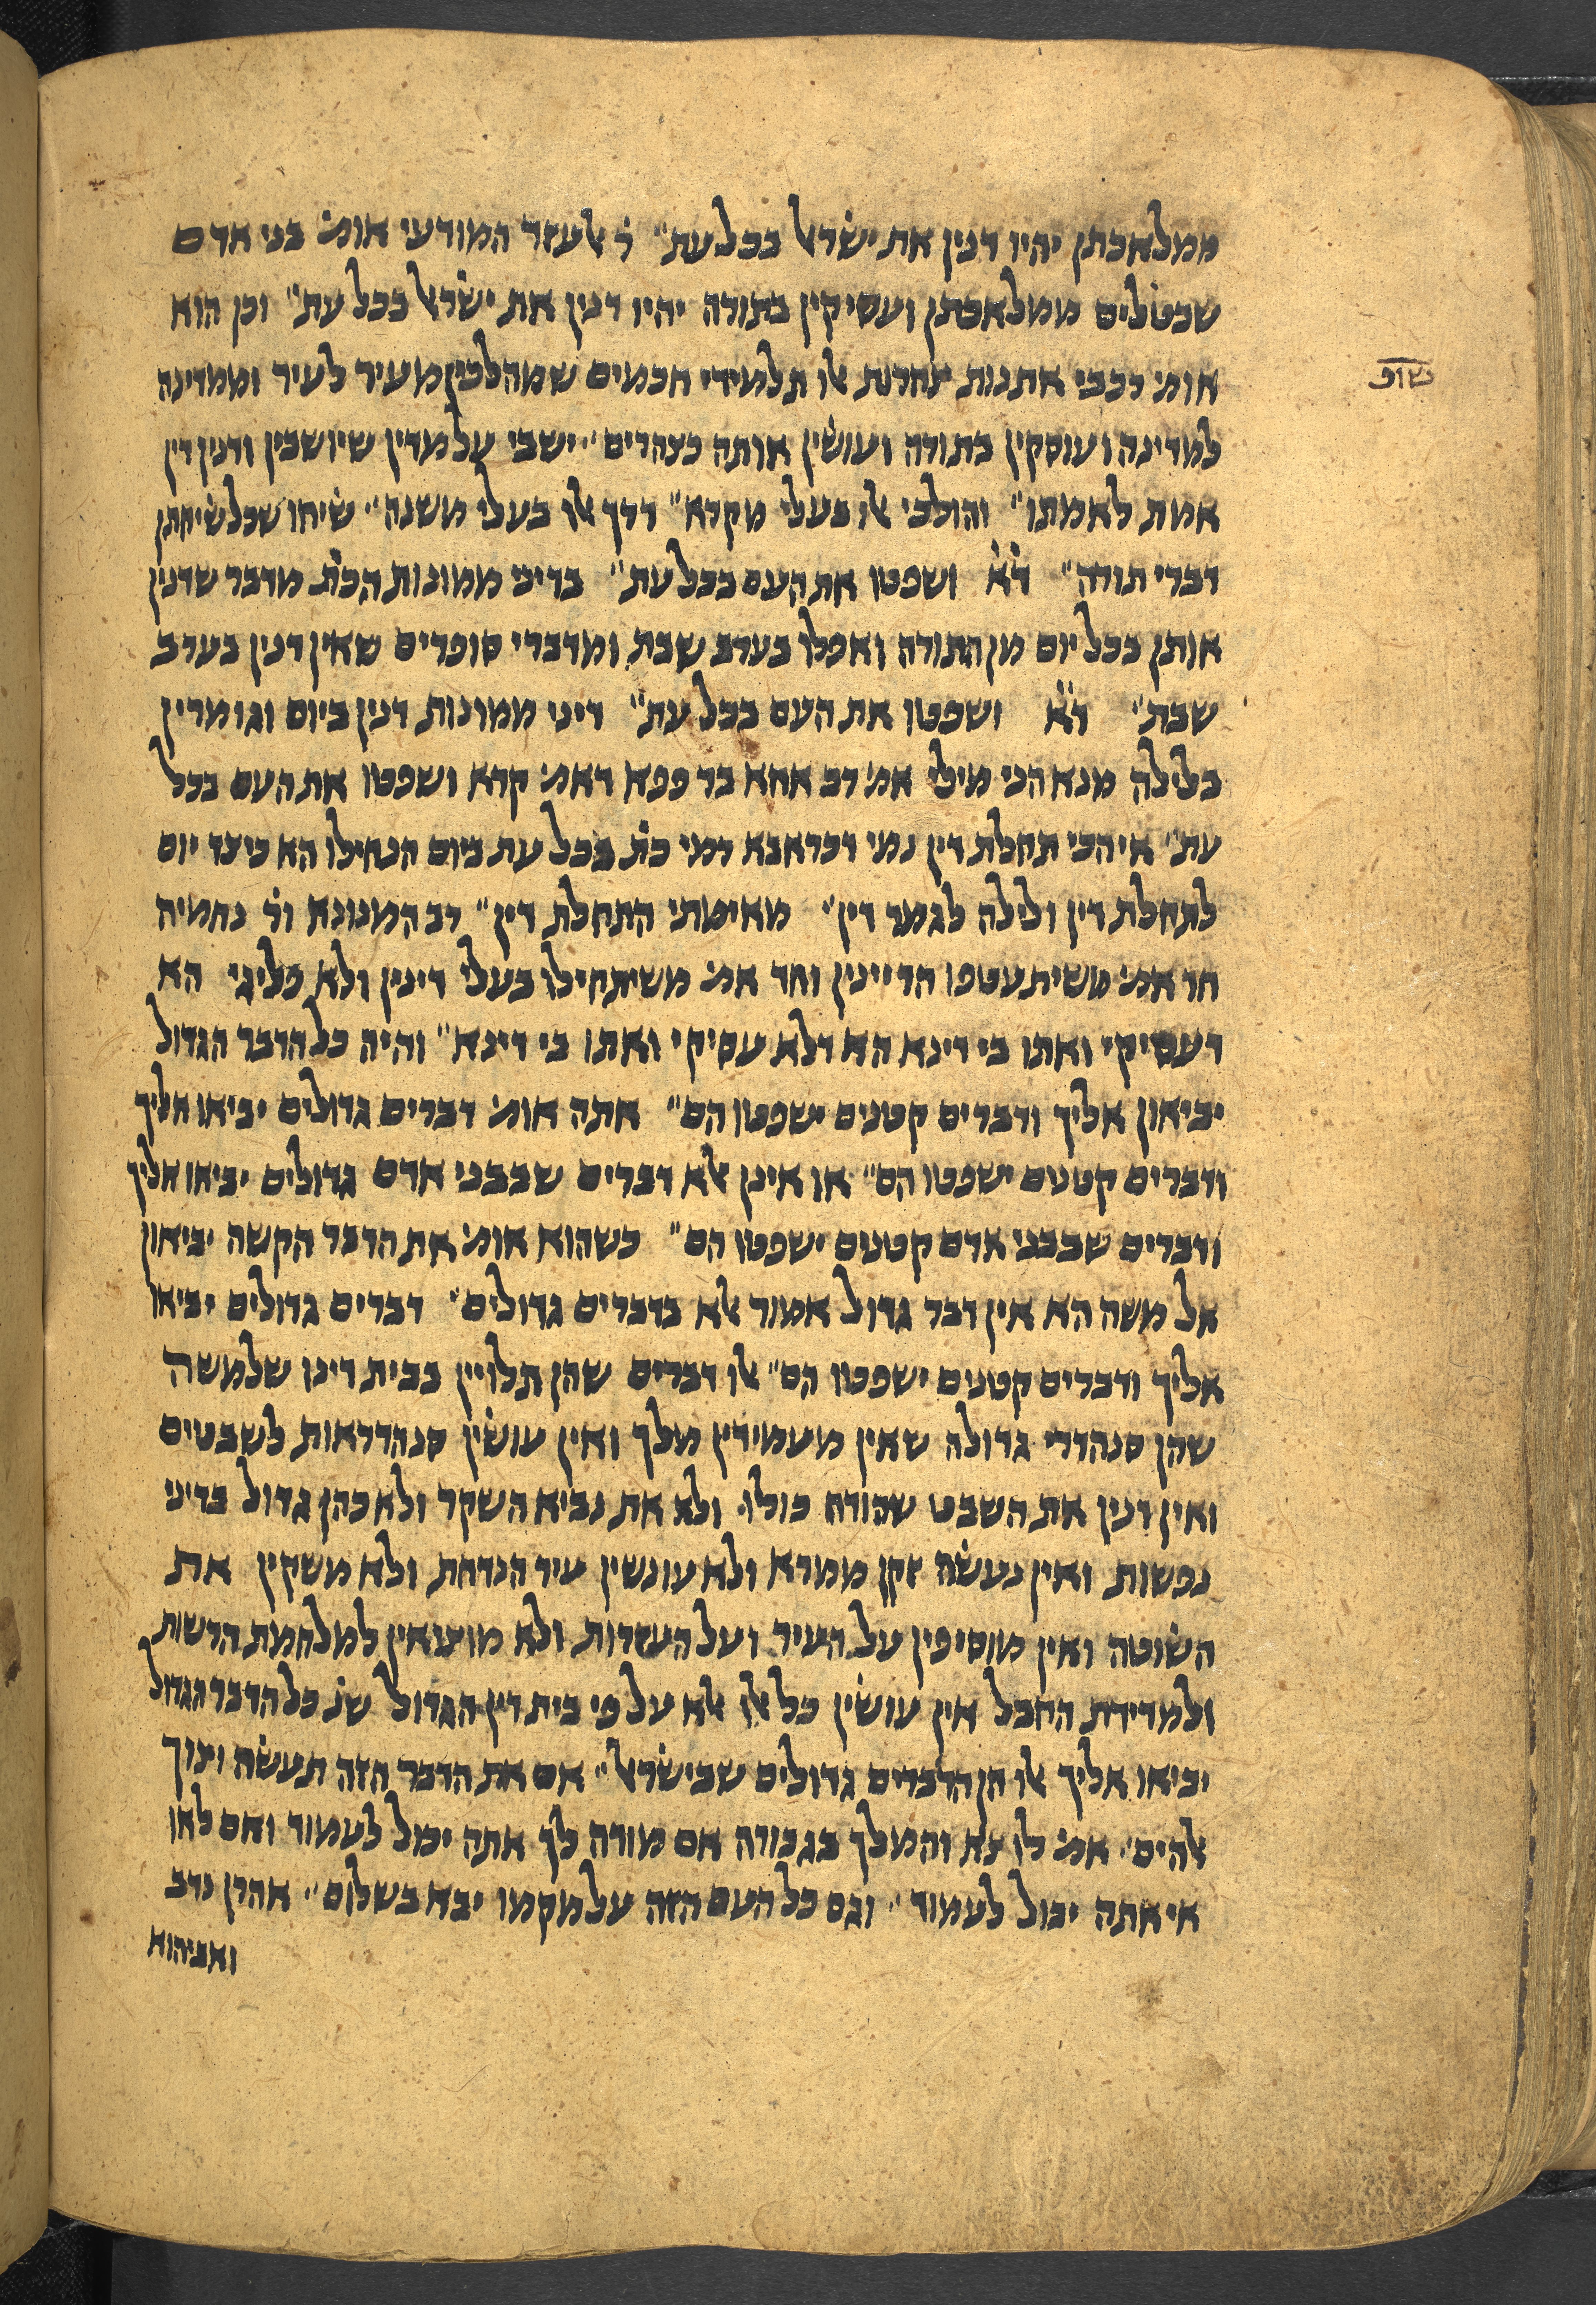 ממלאכתן יהיו דנין את ישׂראל בכל עת״ ר׳ אלעזר המודעי אומ׳ בני אדם
שבטלים ממלאכתן ועסיקין בתורה יהיו דנין את ישׂראל בכל עת״ וכן הוא
אומ׳ רכבי אתנות צחרות אלו תלמידי חכמים שמהלכין מעיר לעיר וממדינה
למדינה ועוסקין בתורה ועושׂין אותה כצהרים״ ישבי על מדין שיושבין ודנין דין
אמת לאמתו״ והולכי אלו בעלי מקרא״ דרך אלו בעלי משנה״ שׂיחו שכל שׂיחתן
דברי תורה״ ד׳א׳ ושפטו את העם בכל עת״ בדיני ממונות הכת׳ מדבר שדנין
אותן בכל יום מן התורה ואפלו בערב שבת ומדברי סופרים שאין דנין בערב
שבת״ ד׳א׳ ושפטו את העם בכל עת״ דיני ממונות דנין ביום וגומרין
בלילה מנא הני מילי אמ׳ רב אחא בר פפא דאמ׳ קרא ושפטו את העם בכל
עת״ אי הכי תחלת דין נמי כדראבא רמי כת׳ בכל עת ביום הנחילו הא כיצד יום
לתחלת דין ולילה לגמר דין״ מאימתי התחלת דין״ רב המנונא ור׳ נחמיה
חד אמ׳ משיתעטפו הדיינין וחד אמ׳ משיתחילו בעלי דינין ולא פליגי הא
דעסיקי ואתו בי דינא הא דלא עסיקי ואתו בי דינא״ והיה כל הדבר הגדול
יביאון אליך ודברים קטנים ישפטו הם״ אתה אומ׳ דברים גדולים יביאו אליך
ודברים קטנים ישפטו הם״ או אינן אלא דברים שבבני אדם גדולים יביאו אליך
ודברים שבבני אדם קטנים ישפטו הם״ כשהוא אומ׳ את הדבר הקשה יביאון
אל משה הא אין דבר גדול אמור אלא בדברים גדולים״ דברים גדולים יביאו
אליך ודברים קטנים ישפטו הם״ אלו דברים שהן תלויין בבית דינו שלמשה
שהן סנהדרי גדולה שאין מעמידין מלך ואין עושׂין סנהדראות לשבטים
ואין דנין את השבט שהודח כולו׳ ולא את נביא השקר ולא כהן גדול בדיני
נפשות ואין נעשׂה זקן ממרא ולא עונשין עיר הנדחת ולא משקין את
השׂוטה ואין מוסיפין על העיר ועל העזרות ולא מוציאין למלחמת הרשות
ולמדידת החבל אין עושׂין כל אלו אלא על פי בית דין הגדול שנ׳ כל הדבר הגדול
יביאו אליך אלו הן הדברים גדולים שבישׂראל״ אם את הדבר הזה תעשׂה וצוך
אלהים״ אמ׳ לו צא והמלך בגבורה אם מורה לך אתה יכול לעמוד ואם לאו
אי אתה יכול לעמוד״ וגם כל העם הזה על מקמו יבא בשלום״ אהרן נדב
ואביהוא